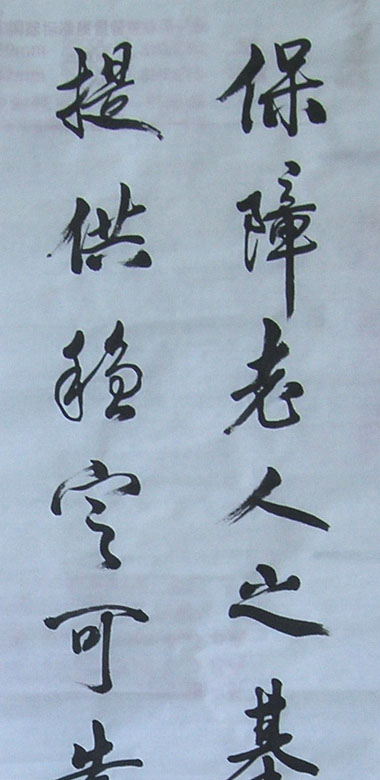 保障老人之基
提供稳定可靠